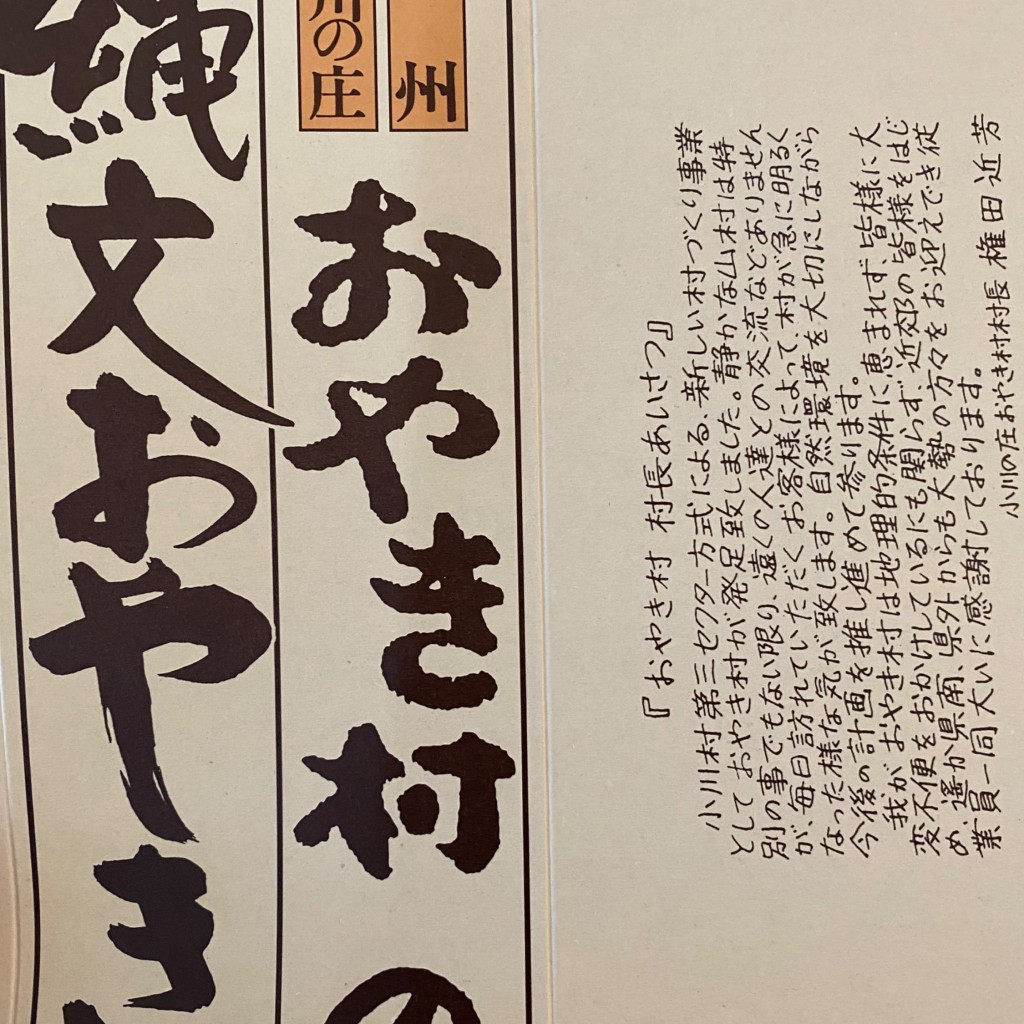 州
川の庄
おやき村の
縄文おやき
『おやき村 村長あいさつ』
小川村第三セクター方式による、新しい村づくり事業
としておやき村が発足致しました。静かな山村は特
別の事でもない限り、遠くの人達との交流などありません
が、毎日訪れていただくお客様によって村が急に明るく
なった様な気が致します。自然環境を大切にしながら
今後の計画を推し進めて参ります。
我がおやき村は地理的条件に恵まれず、皆様に大
変不便をおかけしているにも関らず、近郊の皆様をはじ
め、遥か県南、県外からも大勢の方々をお迎えでき従
業員一同大いに感謝しております。
小川の庄おやき村村長 権田近芳